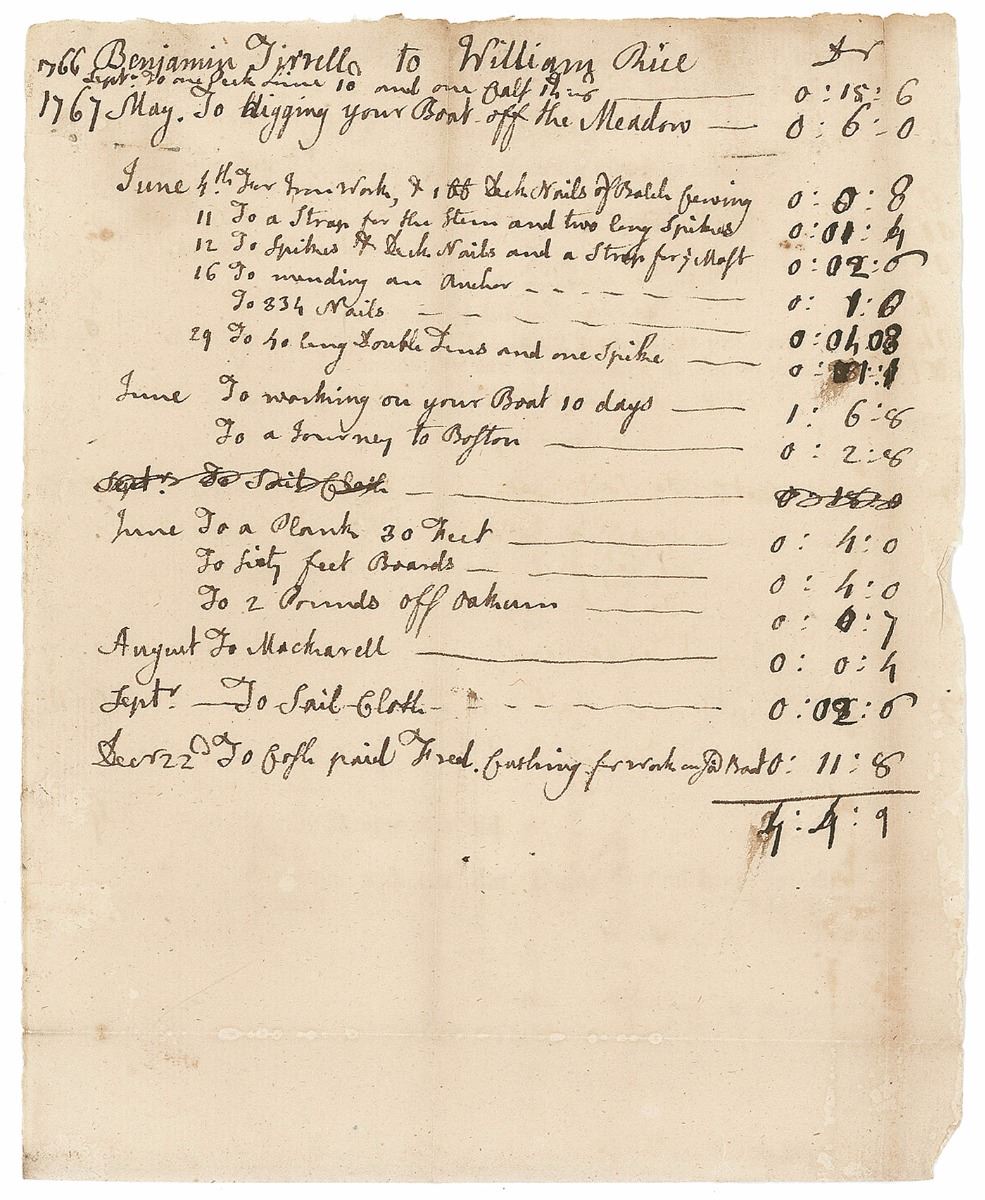 1766 Benjamin Tirrell to William Rice Dr
Septr. To one Peck Lime 10 and one half 0 : 15 : 6
1767 May. To digging your Boat off the Meadow 0 : 6 : 0
June 4th For Iron Work, & 1 lb Deck Nails of 0 : 0 : 8
11 To a Strap for the Stem and two long Spikes 0 : 01 : 4
12 To Spikes & Deck Nails and a Strap for ye Mast 0 : 02 : 6
16 To mending an Anchor 0 : 1 : 0
To 834 Nails 0 : 04 08
29 To 40 long Double Tens and one Spike 0 : 01 : 1
June To working on your Boat 10 days 1 : 6 : 8
To a Journey to Boston 0 : 2 : 8
Septr To Sail Cloth
June To a Plank 30 Feet 0 : 4 : 0
To Sixty feet Boards 0 : 4 : 0
To 2 Pounds off Oakum 0 : 0 : 7
August To Mackarell 0 : 0 : 4
Septr To Sail Cloth 0 : 02 : 6
Decr 22d To Cash paid Fred. Cushing for work on sd Boat 0 : 11 : 8
4 : 4 : 9